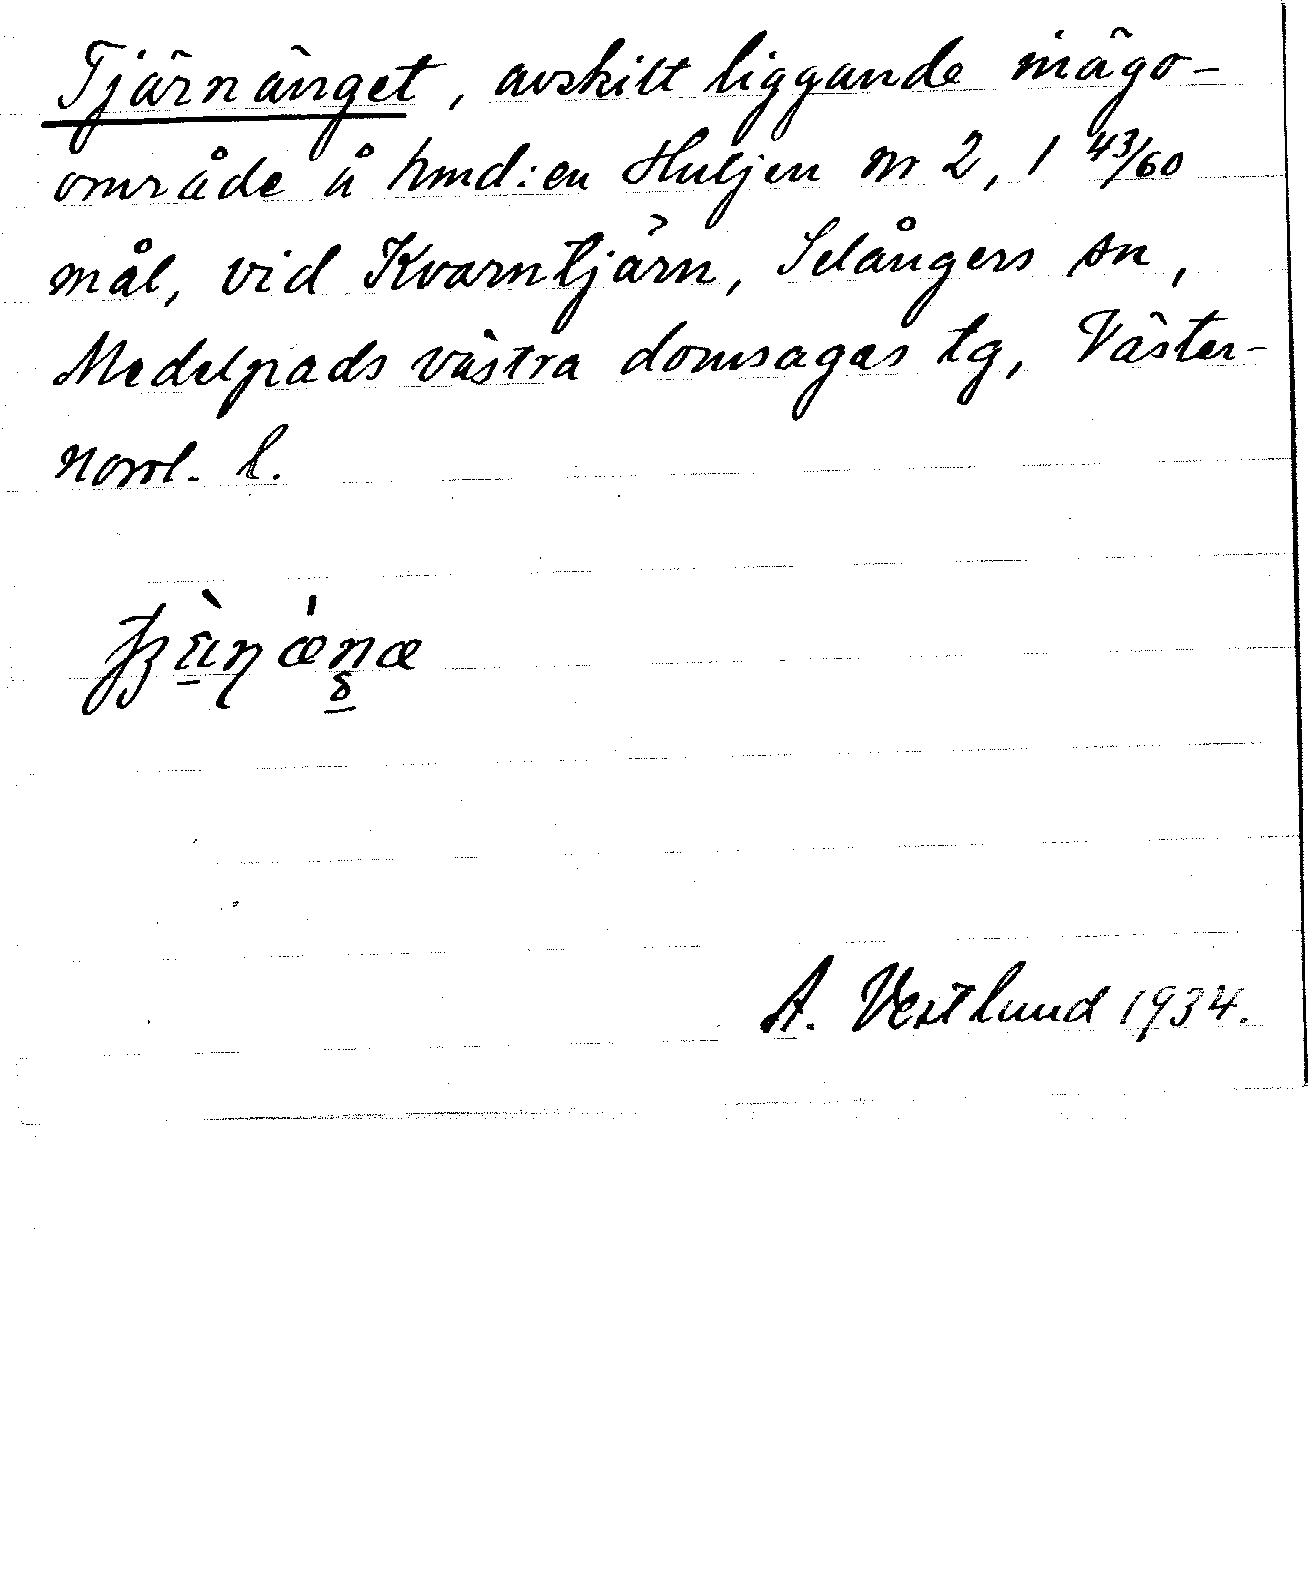 Tjärnänget, avskilt liggande inägo-
område å hmd:en Huljen nr 2, 1 43/60
mål, vid Kvarntjärn, Selångers sn,
Medelpads västra domsagas tg, Väster-
norrl. l.
A. Vestlund 1934.